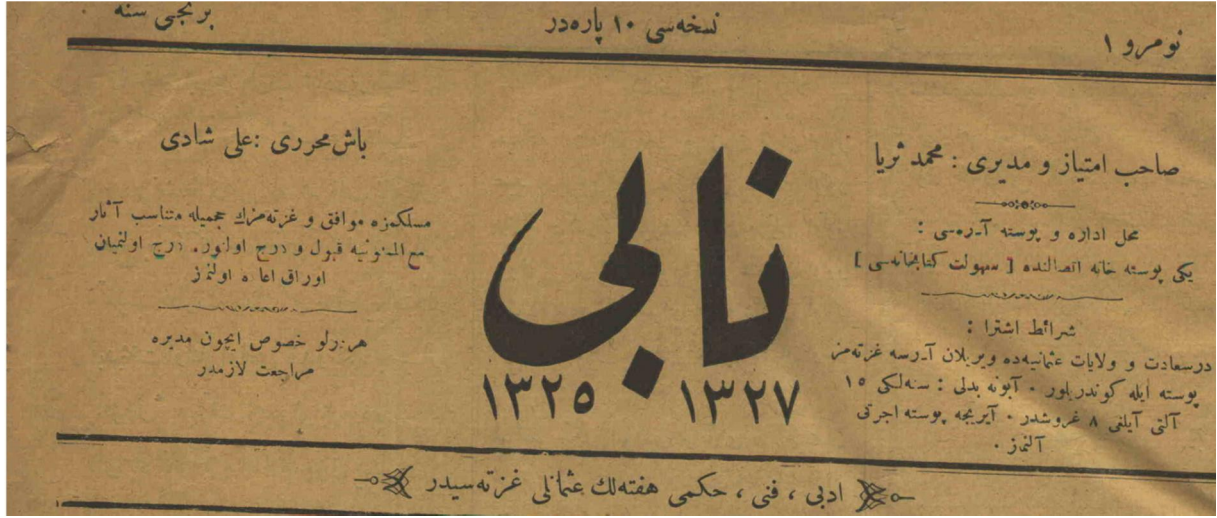 نومرو ۱
نسخه‌سی ۱۰ پاره‌در
برنجی سنه
صاحب امتیاز و مدیری : محمد ثریا
محل اداره و پوسته آدره‌سی :
یکی پوسته خانه اتصالنده [ سهولت کتابخانه‌سی ]
شرائط اشترا :
درسعادت و ولایات عثمانیه‌ده ویریلان آدرسه غزته‌مز
پوسته ایله کوندریلور . آبونه بدلی : سنه‌لکی ۱۵
آلتی آیلغی ۸ غروشدر . آیریجه پوسته اجرتی
آلنماز .
نابی
۱۳۲۷
۱۳۲۵
باش محرری : علی شادی
مسلکمزه موافق و غزته‌مزك حجمیله متناسب آثار
مع الممنونیه قبول و درج اولنور. درج اولنمیان
اوراق اعاده اولنمز
هر درلو خصوص ایچون مدیره
مراجعت لازمدر
ادبی ، فنی ، حکمی هفته‌لك عثمانلی غزته‌سیدر